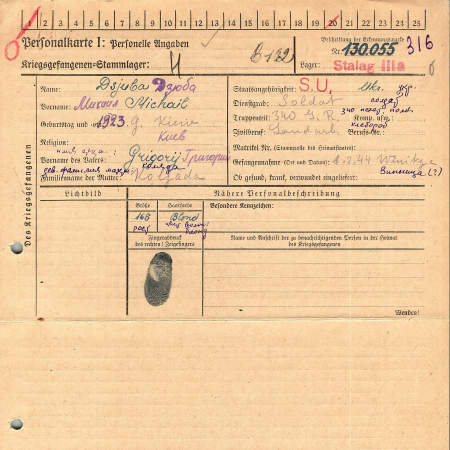 1 2 3 4 5 6 7 8 9 10 11 12 13 14 15 16 17 18 19 20 21 22 23 24 25
Personalkarte I: Personelle Angaben
Kriegsgefangenen-Stammlager:
Beschriftung der Erkennungsmarke
Nr. 130.055 316
Lager: Stalag IIIa
Des Kriegsgefangenen
Name: Dsjuba Дзюба
Vorname: Михаил Michail
Geburtstag und -ort: 1923. g Kiew
Киев
Religion:
имя отца:
Vorname des Vaters: Grigorij Григорий
дев. фамилия матери
Familienname der Mutter: Koljada
Staatsangehörigkeit: S.U. Ukr. укр.
Dienstgrad: Soldat солдат
Truppenteil: 340 G.R. Komp. usw.:
340 полк
хлебороб
Zivilberuf: Landarb. Berufs-Gr.:
Matrikel Nr. (Stammrolle des Heimatstaates):
Gefangennahme (Ort und Datum): .2.44 Winitza
Винница (?)
Ob gesund, krank, verwundet eingeliefert:
Lichtbild
Nähere Personalbeschreibung
Größe Haarfarbe
168 Blond
рост цвет волос
Besondere Kennzeichen:
Fingerabdruck
des rechten! Zeigefingers
Name und Anschrift der zu benachrichtigenden Person in der Heimat
des Kriegsgefangenen
Wenden!